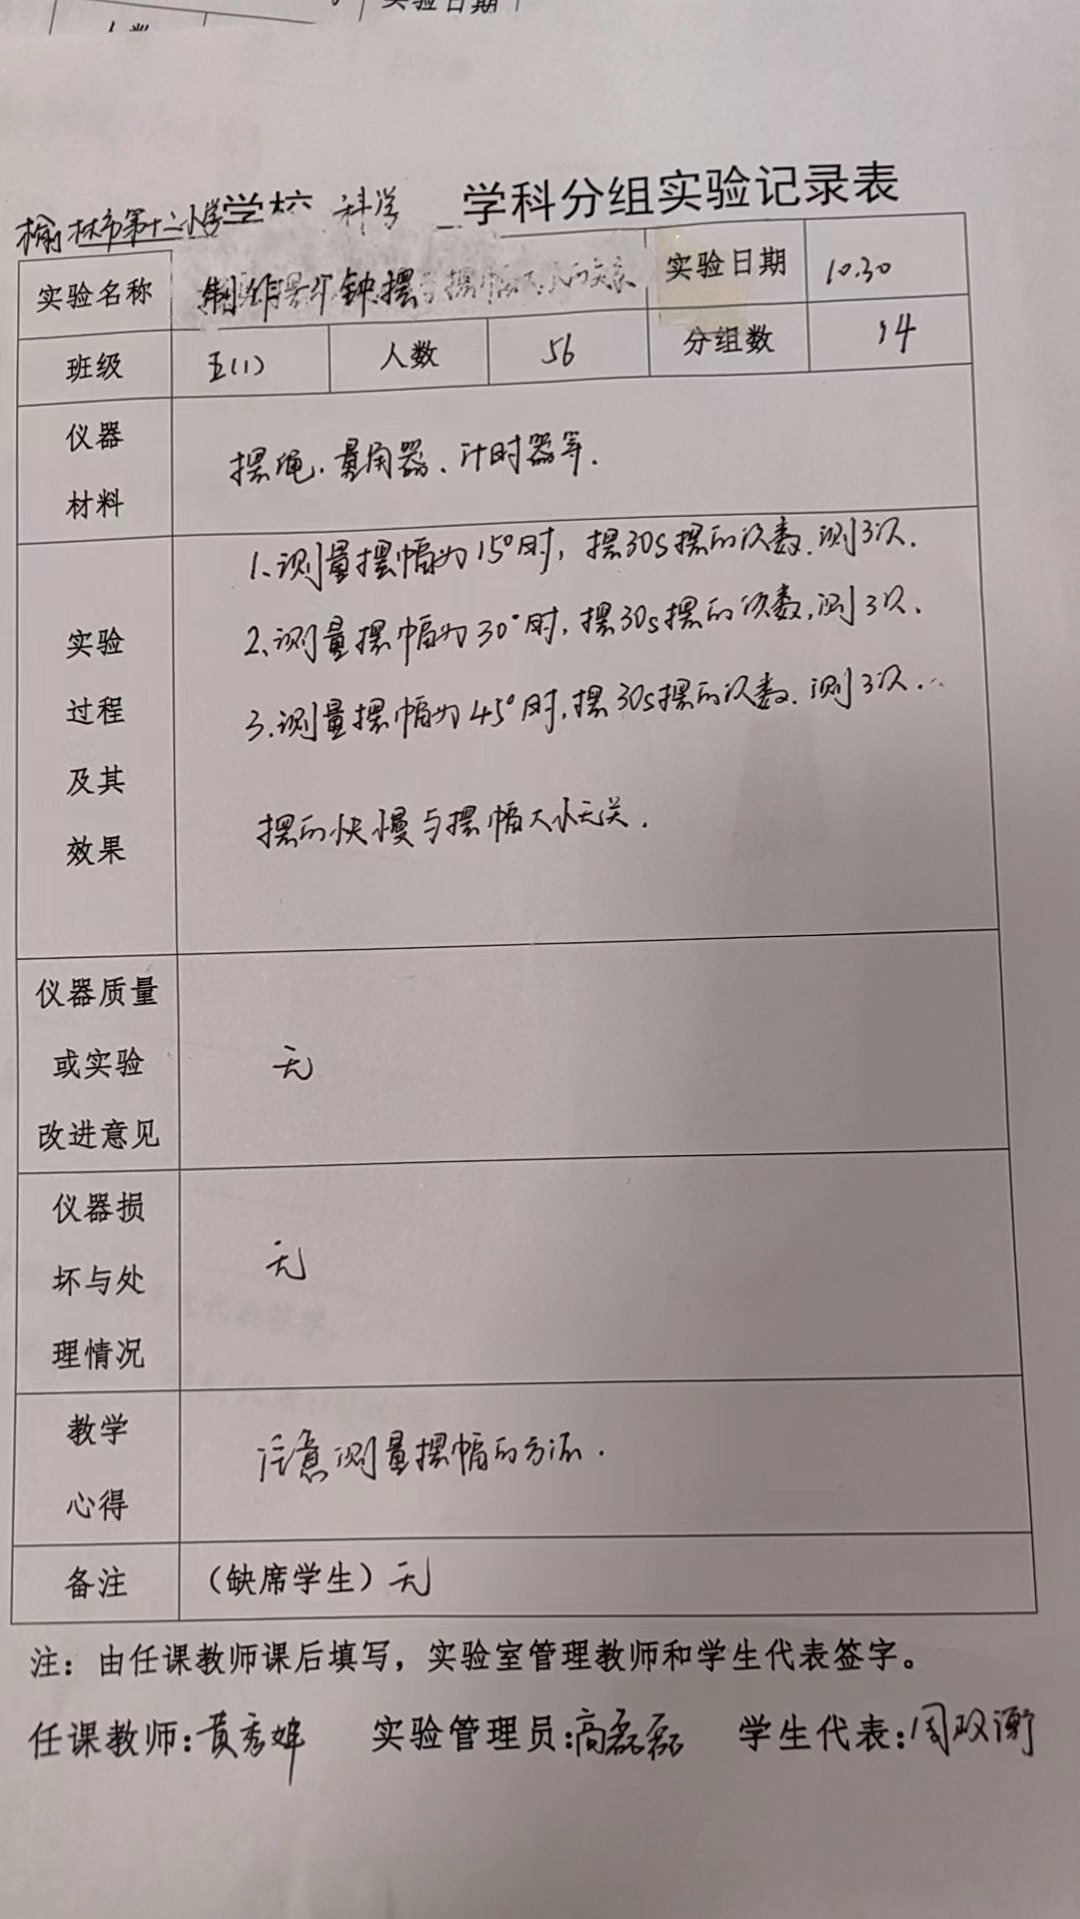 实验日期
榆林市第十二小学学校 科学 学科分组实验记录表
实验名称 制作一个钟摆 实验日期 10.30
班级 五(1) 人数 56 分组数 14
仪器
材料
摆绳、量角器、计时器等.
实验
过程
及其
效果
1、测量摆幅为15°时,摆30s摆的次数.测3次.
2、测量摆幅为30°时,摆30s摆的次数,测3次.
3.测量摆幅为45°时,摆30s摆的次数.测3次.
摆的快慢与摆幅大小无关.
仪器质量
或实验
改进意见
无
仪器损
坏与处
理情况
无
教学
心得
注意测量摆幅的方法.
备注 (缺席学生)无
注：由任课教师课后填写，实验室管理教师和学生代表签字。
任课教师:黄秀 实验管理员:高磊磊 学生代表:周